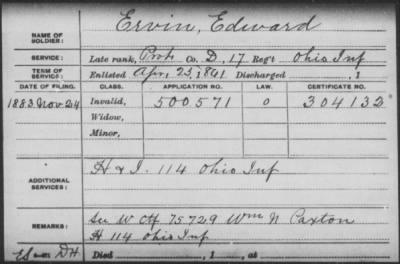 Ervin, Edward
NAME OF SOLDIER:
SERVICE: Late rank, Co. D, 17 Reg't Ohio Inf
TERM OF SERVICE: Enlisted Apr. 25, 1861 Discharged , 1
DATE OF FILING. CLASS. APPLICATION NO. LAW. CERTIFICATE NO.
1883 Nov 24 Invalid, 500571 o 304132
Widow,
Minor,
ADDITIONAL SERVICES: H & I. 114 Ohio Inf
REMARKS: See W Ctf 75729 Wm N Paxton
H 114 Ohio Inf
DH Died , 1 , at